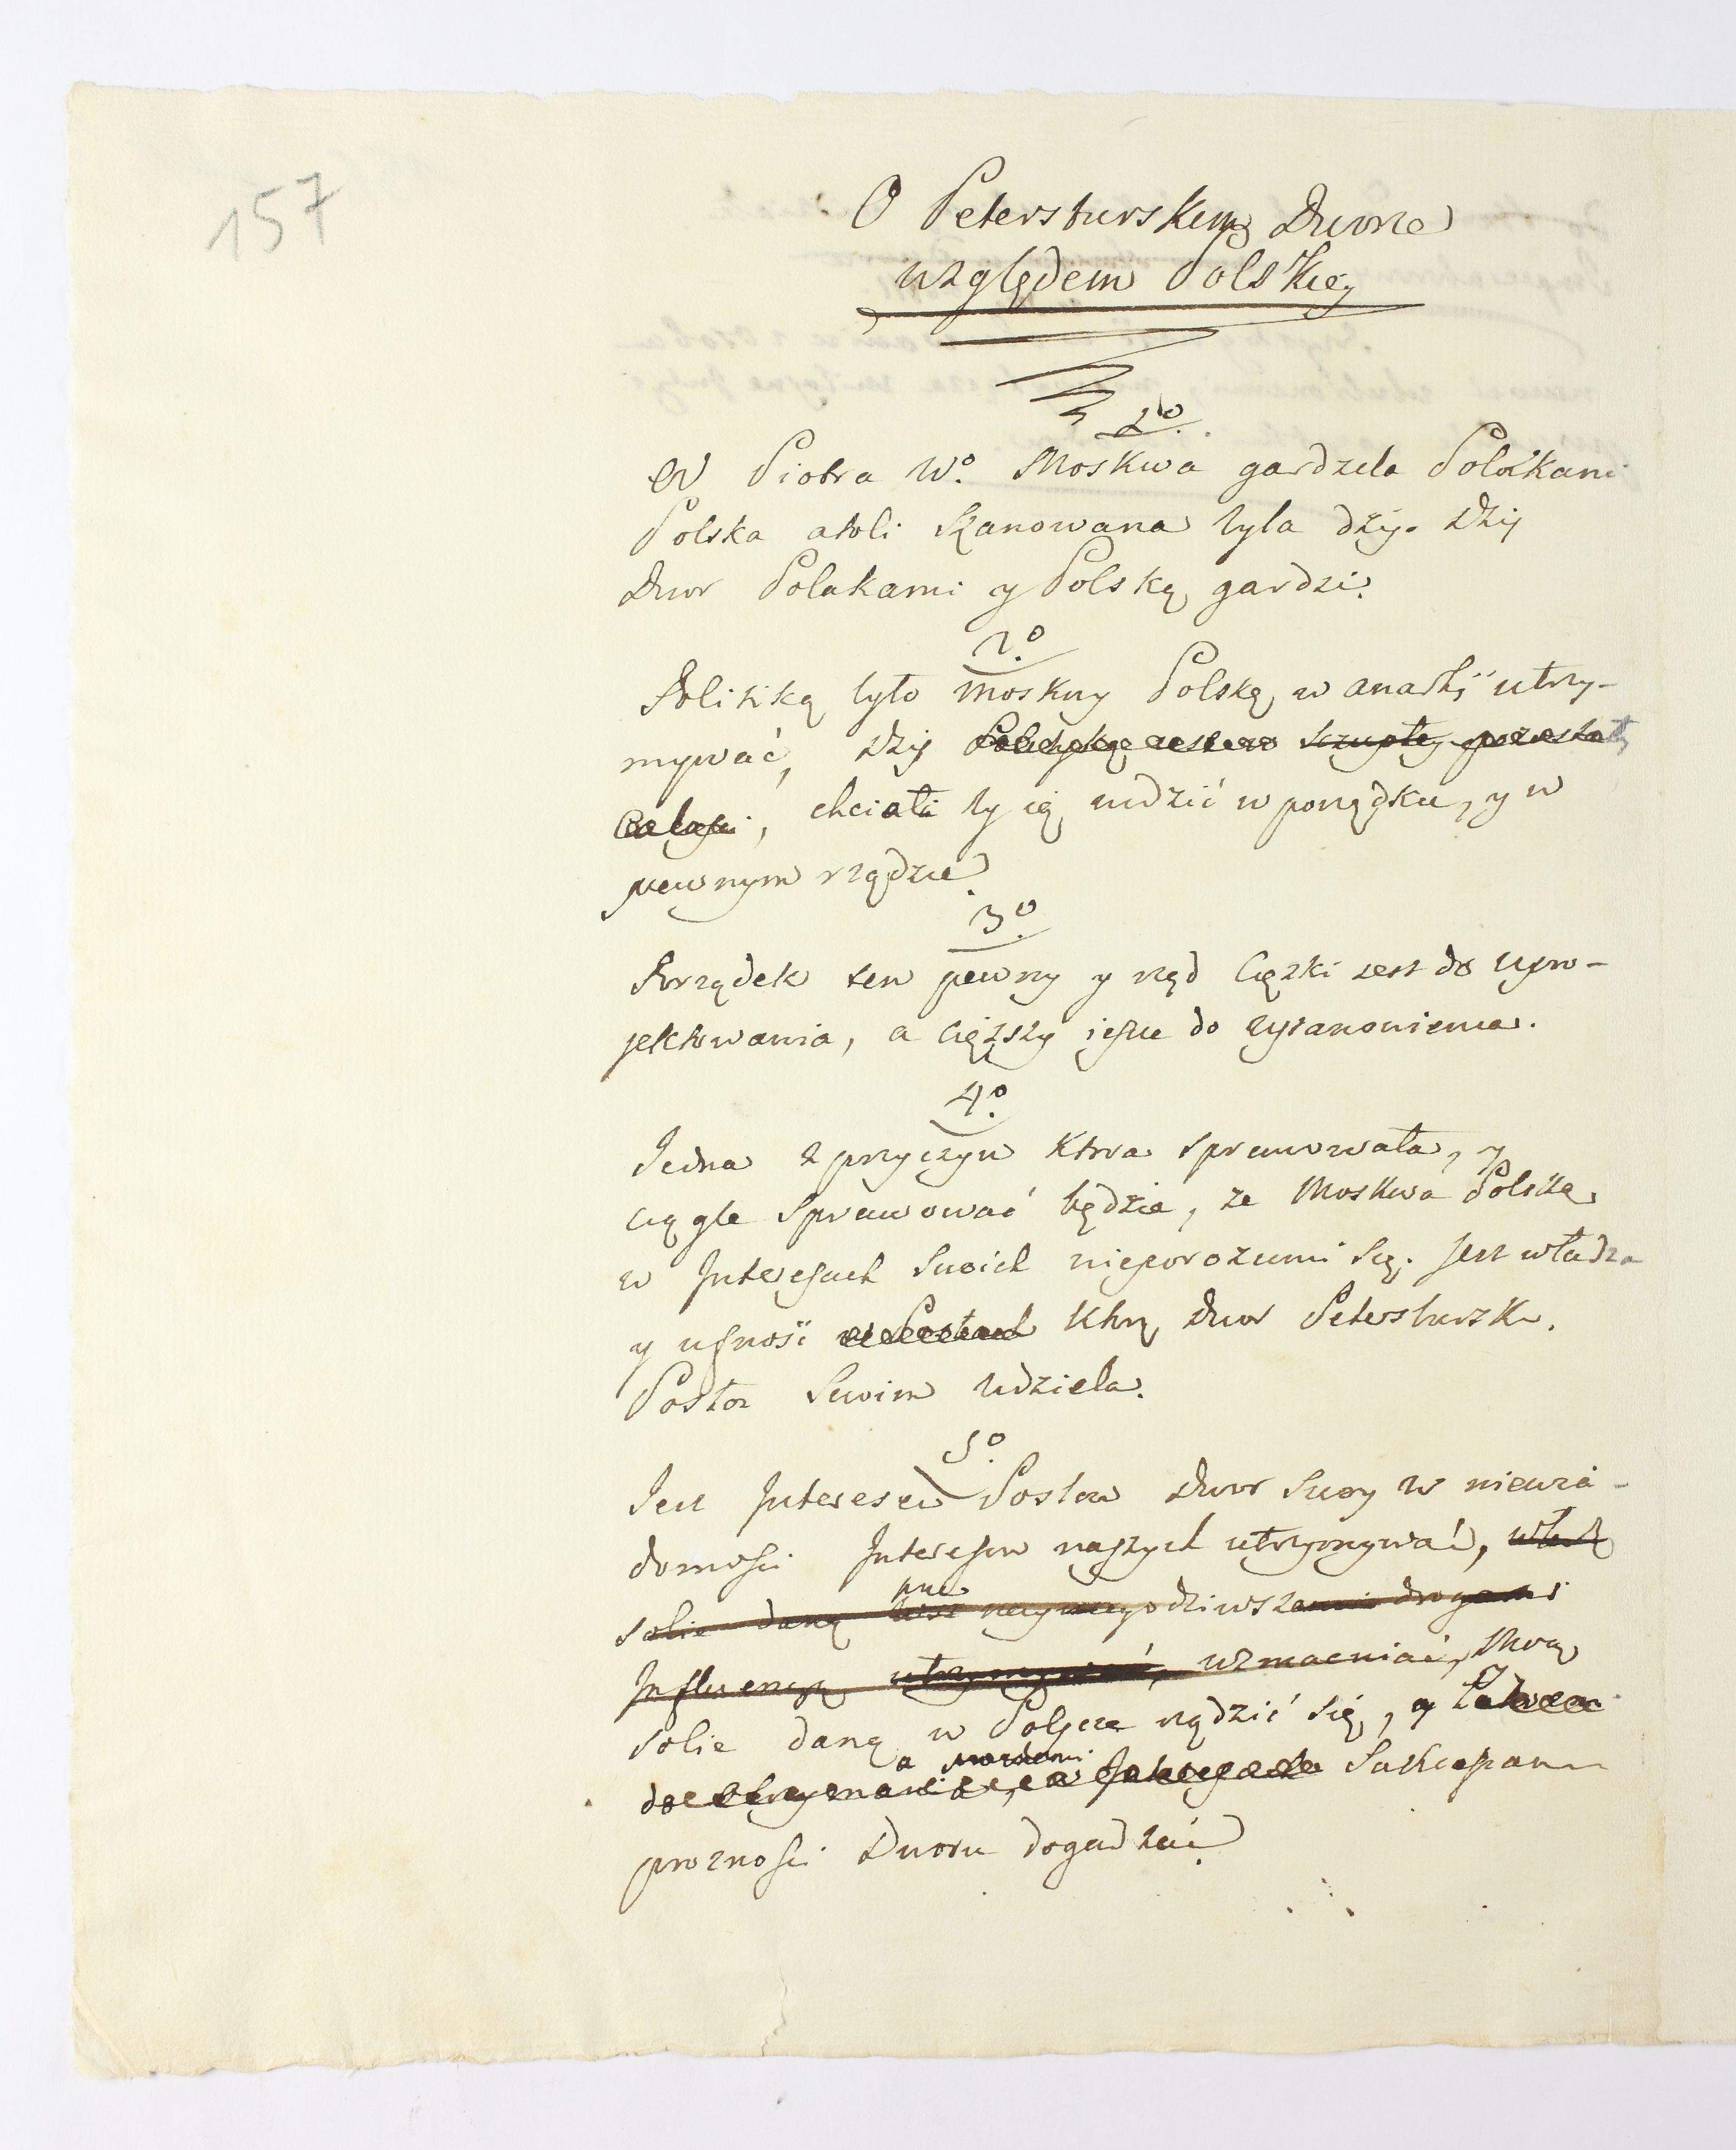 157
O Petersburskim Dworze
względem Polskiey
1º.
Od Piotra Wº. Moskwa gardzila Polakami
Polska atoli szanowana byla dziś. Dziś
Dwor Polakami y Polską gardzi.
2º.
Politiką bylo Moskwy Polskę w anarhij utrzy-
mywać, Dziś Politiką iest szczupłey pozostały
Całości, chciałi by ią widzić w porządku, y w
pewnym rządzie
3º.
Porządek ten pewny y rząd Ciężki iest do upro-
jektowania, a cięższy ieszcze do ustanowienia.
4º.
Jedna z przyczyn ktora sprawowała, y
ciągle sprawować będzie, ze Moskwa z Polską
w Interesach swoich nieporozumi się. Jest władza
y ufność ktorą Dwor Petersburski
Posłom Swoim udziela.
5º.
Jest Interesem Posłow Dwor Swoy w niewia-
domości Interesow naszych utrzymywać, władzą
sobie daną naymniegodziwszemi drogami
Influencyą utrzymywać, wzmacniać, Mocą
sobie daną w Polszcze rządzić się, y
a
prozności Dworu dogadzać